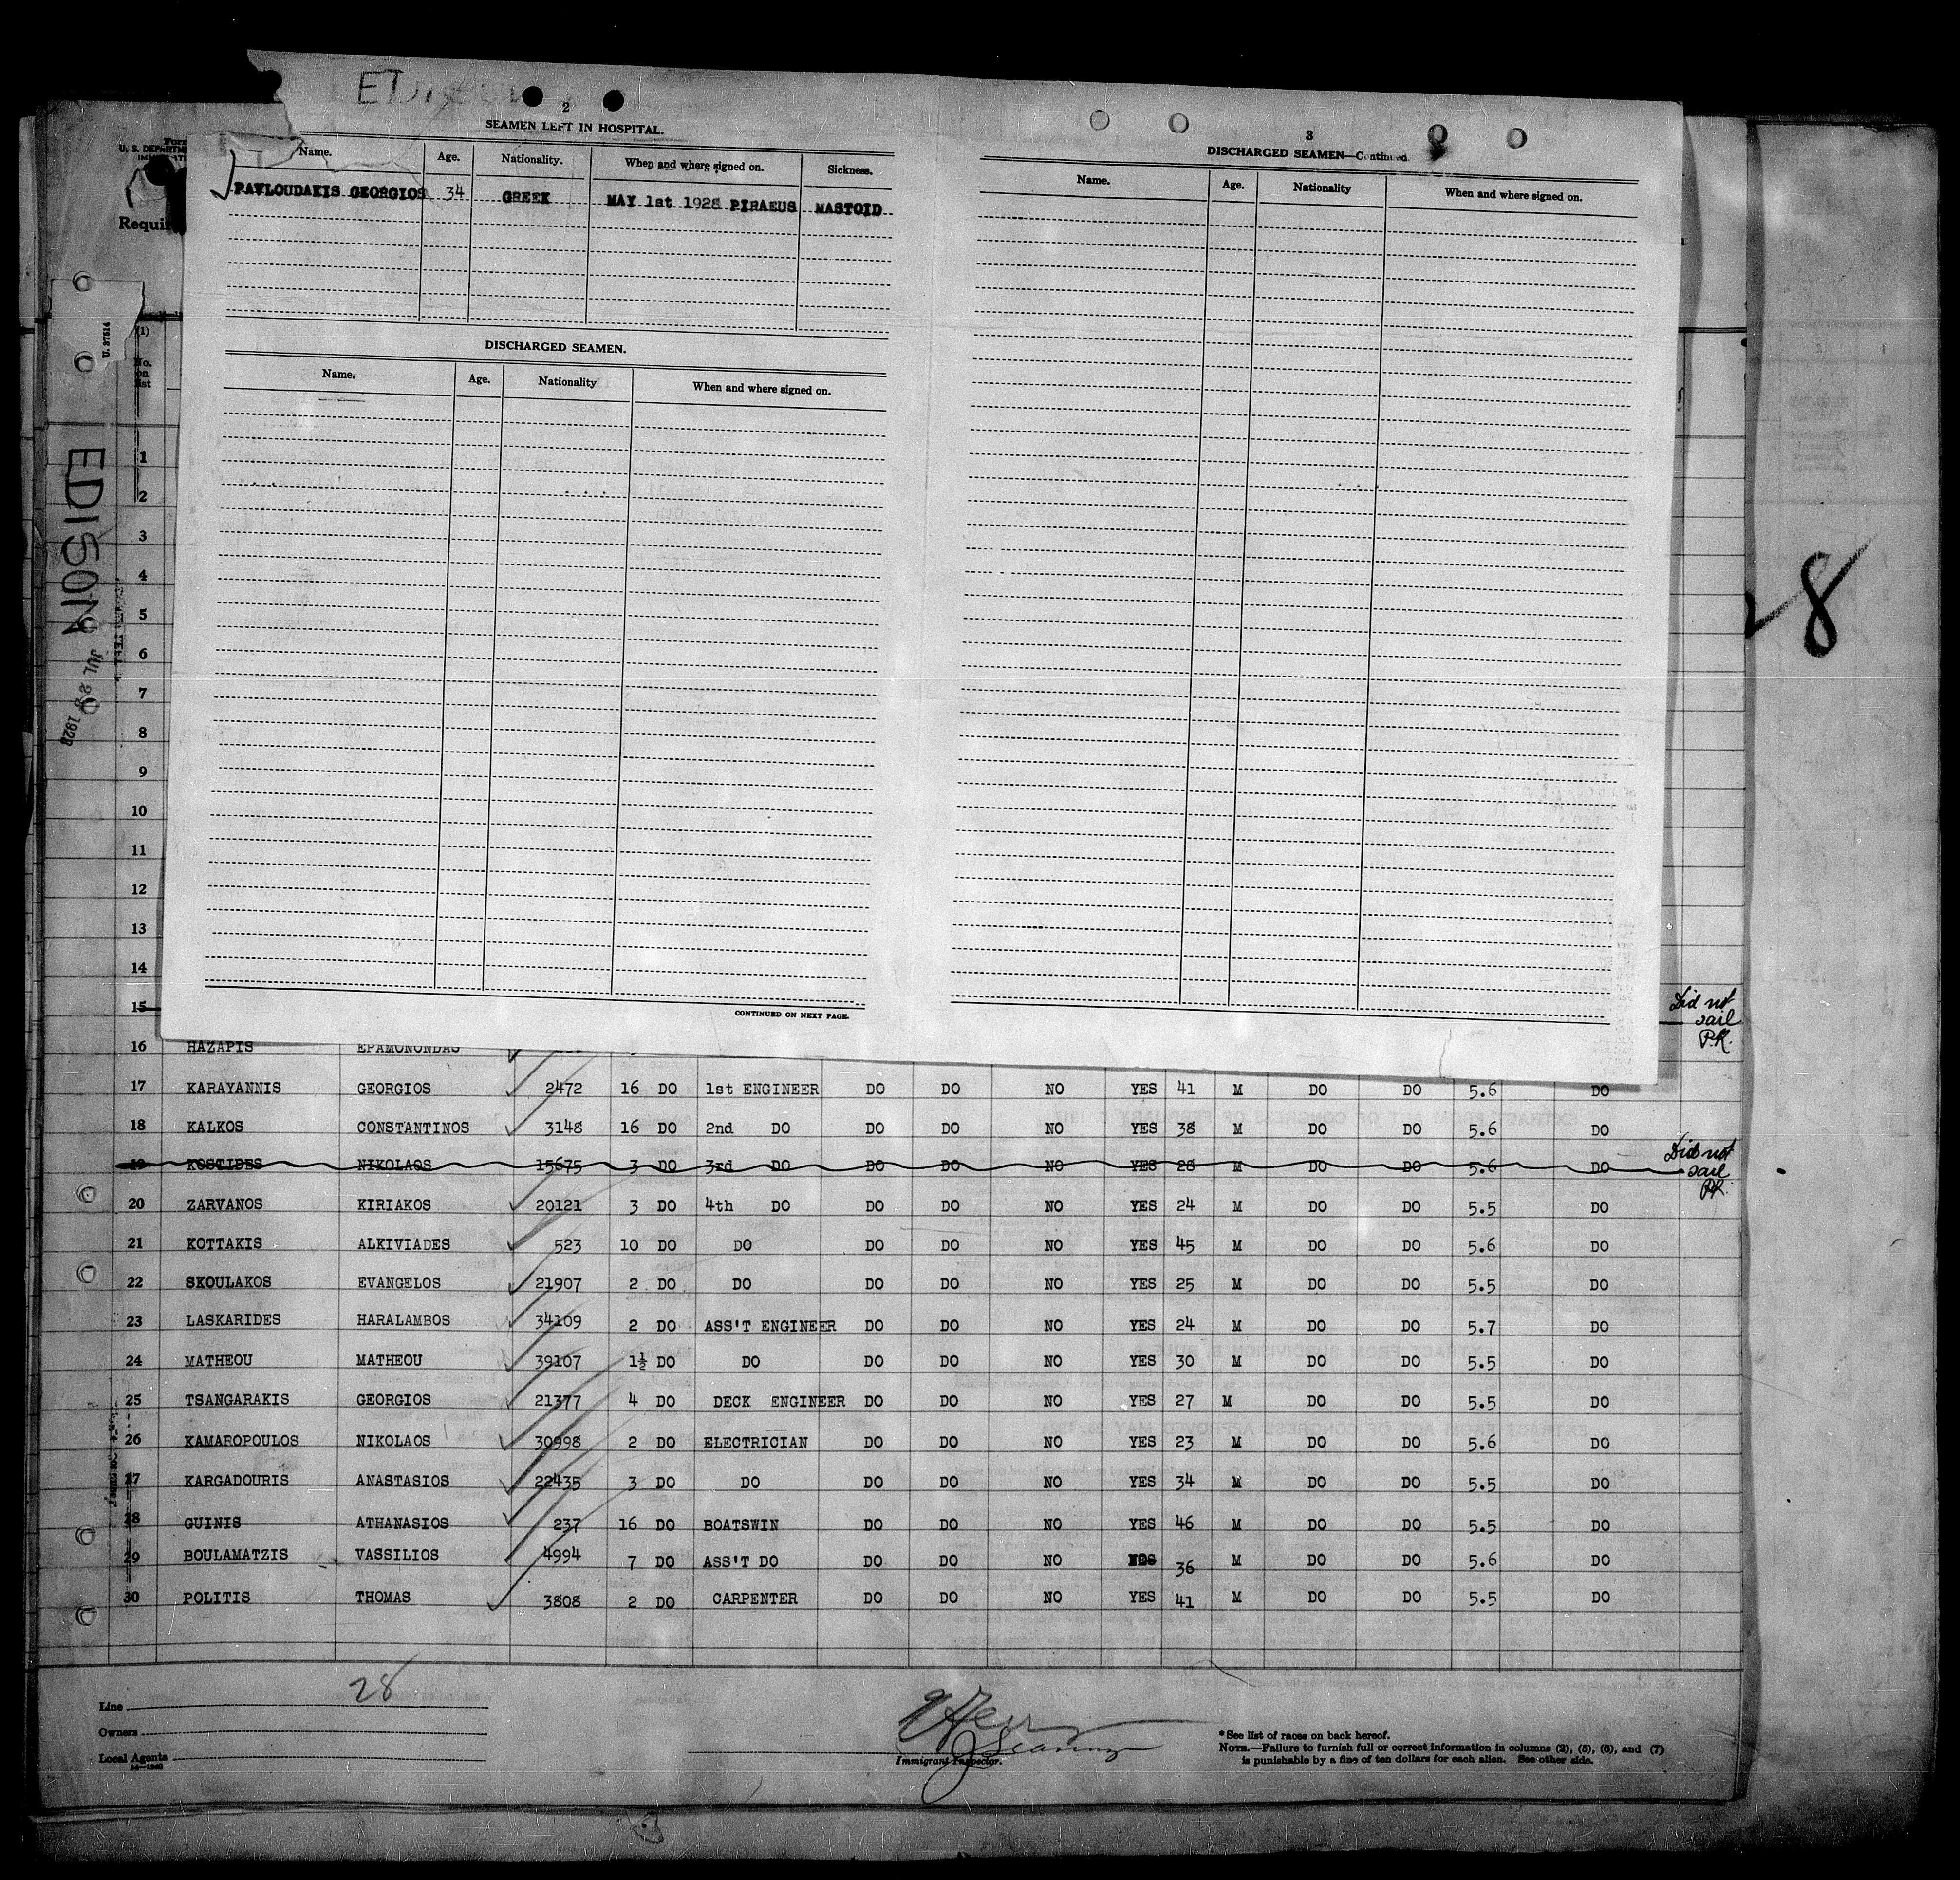 2
SEAMEN LEFT IN HOSPITAL.
Name. Age. Nationality. When and where signed on. Sickness.
PAVLOUDAKIS GEORGIOS 34 GREEK MAY 1st 1928 PIRAEUS MASTOID
DISCHARGED SEAMEN.
Name. Age. Nationality When and where signed on.
CONTINUED ON NEXT PAGE.
3
DISCHARGED SEAMEN—Continued.
Name. Age. Nationality When and where signed on.
Form
U. S. DEPARTM
Requi
U. 37514
(1)
No.
on
list
EDISON
JUL 1928
28
1
2
3
4
5
6
7
8
9
10
11
12
13
14
15 Did not sail P.K.
16 HAZAPIS EPAMONONDAS
17 KARAYANNIS GEORGIOS 2472 16 DO 1st ENGINEER DO DO NO YES 41 M DO DO 5.6 DO
18 KALKOS CONSTANTINOS 3148 16 DO 2nd DO DO DO NO YES 38 M DO DO 5.6 DO
19 KOSTIDES NIKOLAOS 15675 3 DO 3rd DO DO DO NO YES 28 M DO DO 5.6 DO Did not sail P.K.
20 ZARVANOS KIRIAKOS 20121 3 DO 4th DO DO DO NO YES 24 M DO DO 5.5 DO
21 KOTTAKIS ALKIVIADES 523 10 DO DO DO DO NO YES 45 M DO DO 5.6 DO
22 SKOULAKOS EVANGELOS 21907 2 DO DO DO DO NO YES 25 M DO DO 5.5 DO
23 LASKARIDES HARALAMBOS 34109 2 DO ASS'T ENGINEER DO DO NO YES 24 M DO DO 5.7 DO
24 MATHEOU MATHEOU 39107 1½ DO DO DO DO NO YES 30 M DO DO 5.5 DO
25 TSANGARAKIS GEORGIOS 21377 4 DO DECK ENGINEER DO DO NO YES 27 M DO DO 5.5 DO
26 KAMAROPOULOS NIKOLAOS 30998 2 DO ELECTRICIAN DO DO NO YES 23 M DO DO 5.6 DO
27 KARGADOURIS ANASTASIOS 22435 3 DO DO DO DO NO YES 34 M DO DO 5.5 DO
28 GUINIS ATHANASIOS 237 16 DO BOATSWIN DO DO NO YES 46 M DO DO 5.5 DO
29 BOULAMATZIS VASSILIOS 4994 7 DO ASS'T DO DO DO NO 36 M DO DO 5.6 DO
30 POLITIS THOMAS 3808 2 DO CARPENTER DO DO NO YES 41 M DO DO 5.5 DO
28
Line
Owners
Local Agents
Immigrant Inspector.
*See list of races on back hereof.
NOTE.—Failure to furnish full or correct information in columns (2), (5), (6), and (7)
is punishable by a fine of ten dollars for each alien. See other side.